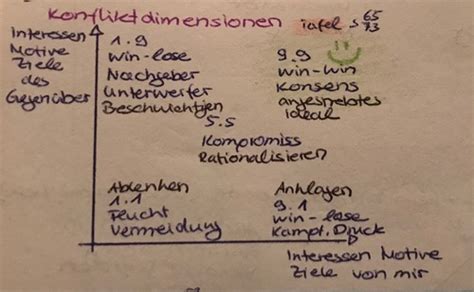 Konfliktdimensionen Tafel S 65
73
Interessen
Motive
Ziele
des
Gegenüber
1.9
win-lose
Nachgeber
Unterwerfer
Beschwichtigen
9.9
win-win
Konsens
angestrebtes
Ideal
5.5
Kompromiss
Rationalisieren
Ablenken
1.1
Flucht
Vermeidung
Anklagen
9.1
win-lose
Kampf, Druck
Interessen Motive
Ziele von mir